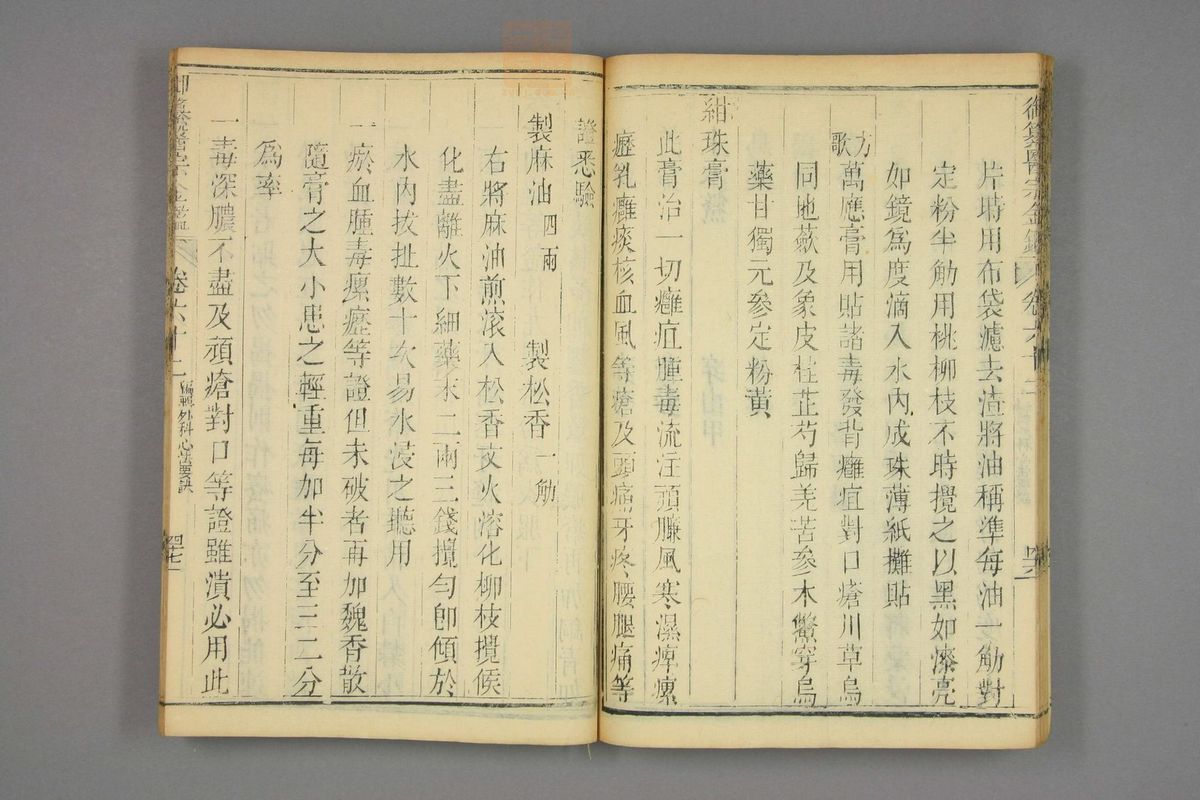 御纂醫宗金鑑 卷六十二 四六
片時用布袋濾去渣將油稱準每油一觔對
定粉半觔用桃柳枝不時攪之以黑如漆亮
如鏡爲度滴入水內成珠薄紙攤貼
方歌
萬應膏用貼諸毒發背癰疽對口瘡川草烏
同地蘞及象皮桂芷芍歸羌苦參木鱉穿烏
藥甘獨元參定粉黃
紺珠膏
此膏治一切癰疽腫毒流注頭臁風寒濕痺瘰
癧乳癰痰核血風等瘡及頭痛牙疼腰腿痛等
證悉驗
製麻油四兩 製松香一觔
右將麻油煎滾入松香文火溶化柳枝攪候
化盡離火下細藥末二兩三錢攪勻卽傾於
水內拔扯數十次易水浸之聽用
一瘀血腫毒瘰癧等證但未破者再加魏香散
隨膏之大小患之輕重每加半分至三二分
爲率
一毒深膿不盡及頑瘡對口等證雖潰必用此
卷六十二 編輯外科心法要訣 四七